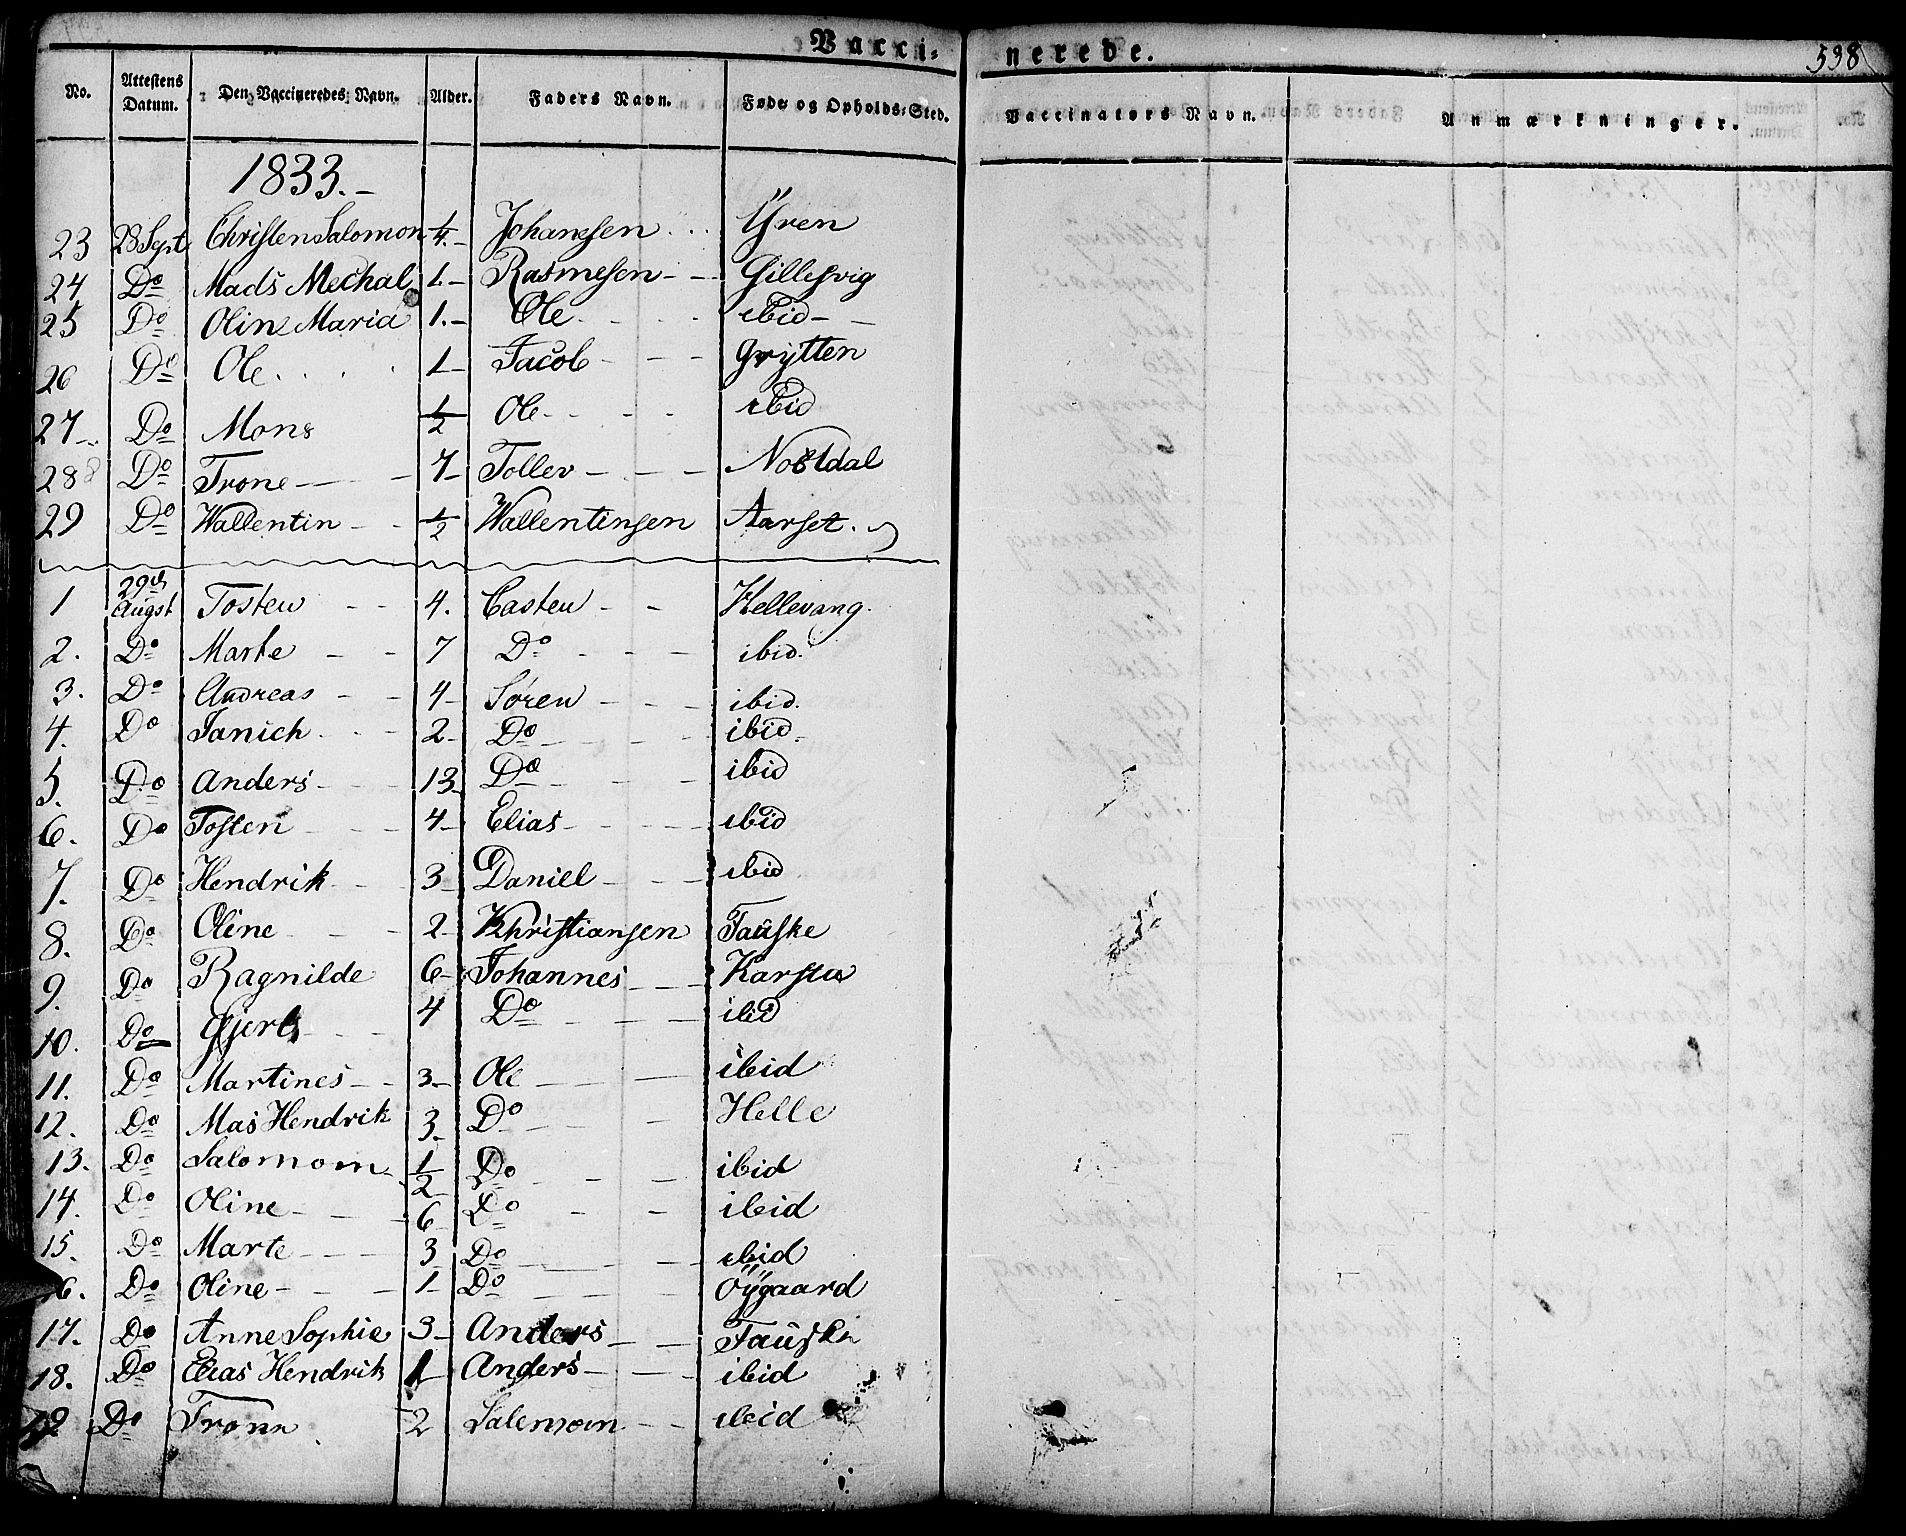 Vacci-nerede.
538
No. Attestens Datum. Den Vaccineredes Navn. Alder. Faders Navn. Føde og Opholds-Sted. Vaccinators Navn. Anmærkninger.
1833.-
23 23 Sept Christen Salomon 1/4.- Johanesen ... Yren
24 Do Mads Mechal 1.- Rasmesen - - Gillesvig
25 Do Olin Maria 1.- Ole - - - ibid - -
26 Do Ole . . . . 1- Jacob - - - Grytten
27 Do Mons 1/2 Ole - - - - ibid
28 Do Trone - - - 7- Tollev - - - Nostdal
29 Do Wallentin - - 1/2 Wallentinsen Aarset.
1 29de Augst Tosten - - 4. Casten - - Hellevang.
2. Do Marte - - 7 Do - - - ibid.
3. Do Andreas - - 4- Sören - - - ibid.
4. Do Janich - - - 2- Do - - - ibid.
5. Do Anders - - - 13 Do - - - ibid
6. Do Tosten - - - 4- Elias - - - - ibid
7. Do Hendrik - - 3- Daniel - - - ibid
8. Do Oline - - - 2- Khristiansen Tauske
9. Do Ragnilde 6- Johannes - - Karstu
10. Do Gjert - - - 4 Do - - - ibid
11. Do Martines - - 3- Ole - - - ibid
12. Do Mas Hendrik 3- Do - - - Helle
13. Do Salomom 1/2 Do - - - ibid
14. Do Oline - - - 6- Do - - ibid
15. Do Marte - - - 3 Do - - - ibid
16. Do Oline - - - 1- Do - - - Oÿgaard
17. Do Anne Sophie 3- Anders - - Tauske
18. Do Elias Hendrik 1 Anders - - - ibid
19 Do Tronn 2 Salemom - - ibid